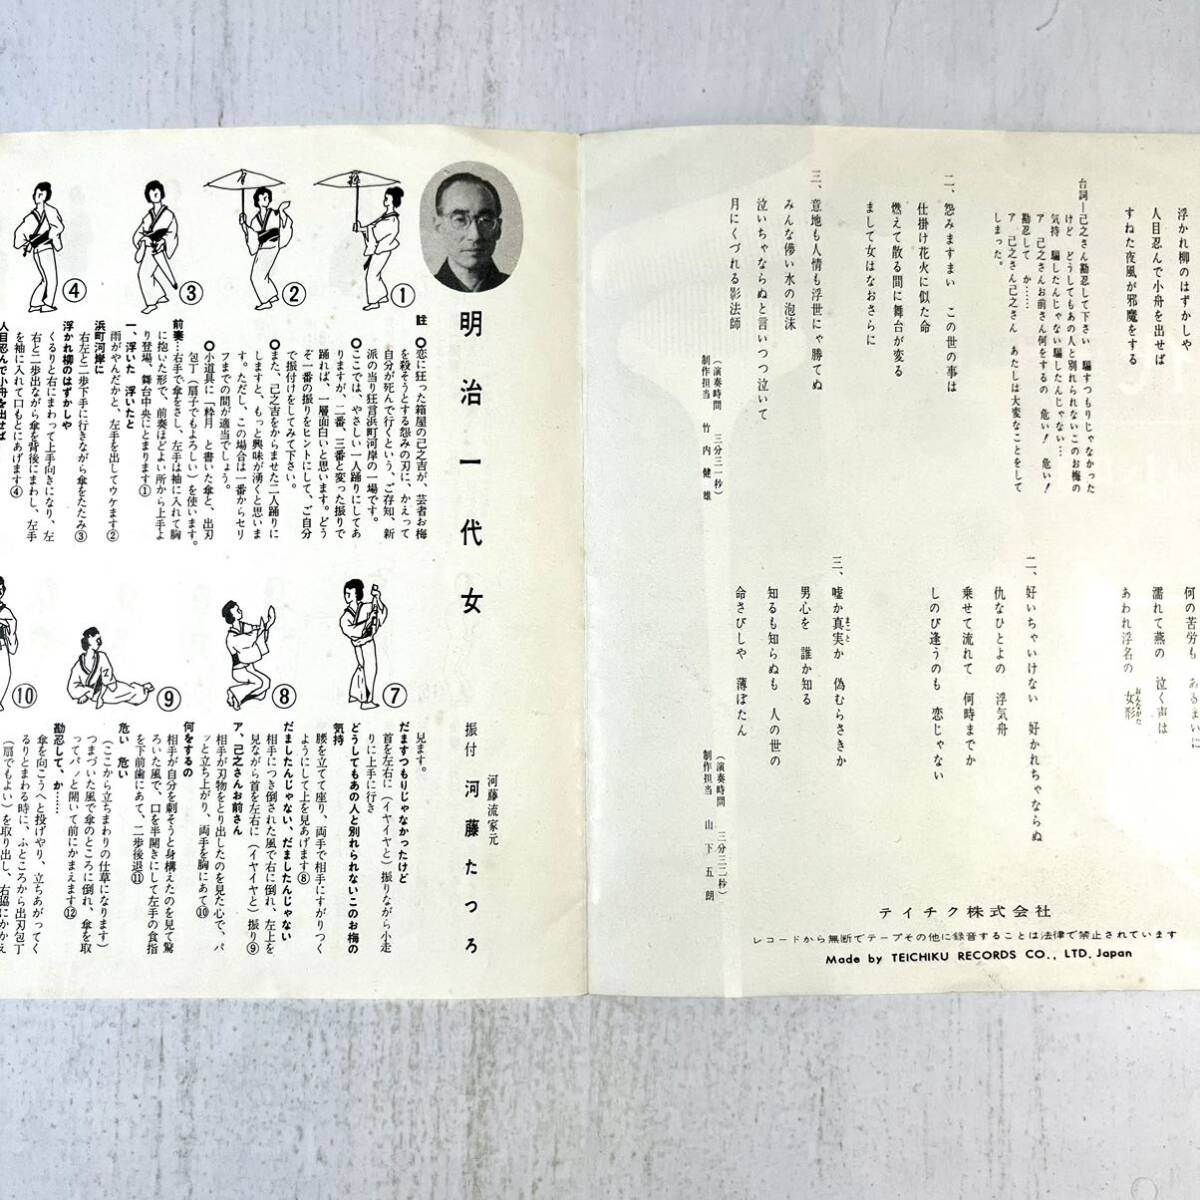 浮かれ柳のはずかしや
人目忍んで小舟を出せば
すねた夜風が邪魔をする
台詞―己之さん勘忍して下さい　騙すつもりじゃなかった
けど　どうしてもあの人と別れられないこのお梅の
気持　騙したんじゃない騙したんじゃない…
ア　己之さんお前さん何をするの　危い！　危い！
勘忍して　か……
ア　己之さん己之さん　あたしは大変なことをして
しまった。
二、怨みますまい　この世の事は
仕掛け花火に似た命
燃えて散る間に舞台が変る
まして女はなおさらに
三、意地も人情も浮世にゃ勝てぬ
みんな儚い水の泡沫
泣いちゃならぬと言いつつ泣いて
月にくづれる影法師
（演奏時間　三分三一秒）
制作担当　竹内健雄
何の苦労も　あるまいに
濡れて燕の　泣く声は
あわれ浮名の　女形
おんながた
二、好いちゃいけない　好かれちゃならぬ
仇なひとよの　浮気舟
乗せて流れて　何時までか
しのび逢うのも　恋じゃない
三、嘘か真実か　偽むらさきか
まこと
男心を　誰か知る
知るも知らぬも　人の世の
命さびしや　薄ぼたん
（演奏時間　三分三二秒）
制作担当　山下五朗
テイチク株式会社
レコードから無断でテープその他に録音することは法律で禁止されています
Made by TEICHIKU RECORDS CO., LTD. Japan
明治一代女
河藤流家元
振付　河藤たつろ
①
②
③
④
註　●恋に狂った箱屋の己之吉が、芸者お梅
を殺そうとする怨みの刃に、かえって
自分が死んで行くという、ご存知、新
派の当り狂言浜町河岸の一場です。
●ここでは、やさしい一人踊りにしてあ
りますが、二番、三番と変った振りで
踊れば、一層面白いと思います。どう
ぞ一番の振りをヒントにして、ご自分
で振付けをしてみて下さい。
●また、己之吉をからませた二人踊りに
しますと、もっと興味が湧くと思いま
す。ただし、この場合は一番からセリ
フまでの間が適当でしょう。
●小道具に「粋月」と書いた傘と、出刃
包丁（扇子でもよろしい）を使います。
前奏…右手で傘をさし、左手は袖に入れて胸
に抱いた形で、前奏ほどよい所から上手よ
り登場、舞台中央にとまります①
一、浮いた　浮いたと
雨がやんだかと、左手を出してウケます②
浜町河岸に
右左と二歩下手に行きながら傘をたたみ③
浮かれ柳のはずかしや
くるりと右にまわって上手向きになり、左
右と二歩出ながら傘を背後にまわし、左手
を袖に入れて口もとにあげます④
人目忍んで小舟を出せば
⑦
⑧
⑨
⑩
見ます。
だますつもりじゃなかったけど
首を左右に（イヤイヤと）振りながら小走
りに上手に行き
どうしてもあの人と別れられないこのお梅の
気持
腰を立てて座り、両手で相手にすがりつく
ようにして上を見あげます⑧
だましたんじゃない、だましたんじゃない
相手につき倒された風で右に倒れ、左上を
見ながら首を左右に（イヤイヤと）振り⑨
ア、己之さんお前さん
相手が刃物をとり出したのを見た心で、パ
ッと立ち上がり、両手を胸にあて⑩
何をするの
相手が自分を刺そうと身構えたのを見て驚
ろいた風で、口を半開きにして左手の食指
を下前歯にあて、二歩後退⑪
危い　危い
（ここから立ちまわりの仕草になります）
つまづいた風で傘のところに倒れ、傘を取
ってパッと開いて前にかまえます⑫
勘忍して、か……
傘を向こうへと投げやり、立ちあがってく
るりとまわる時に、ふところから出刃包丁
（扇でもよい）を取り出し、右脇にかかえ